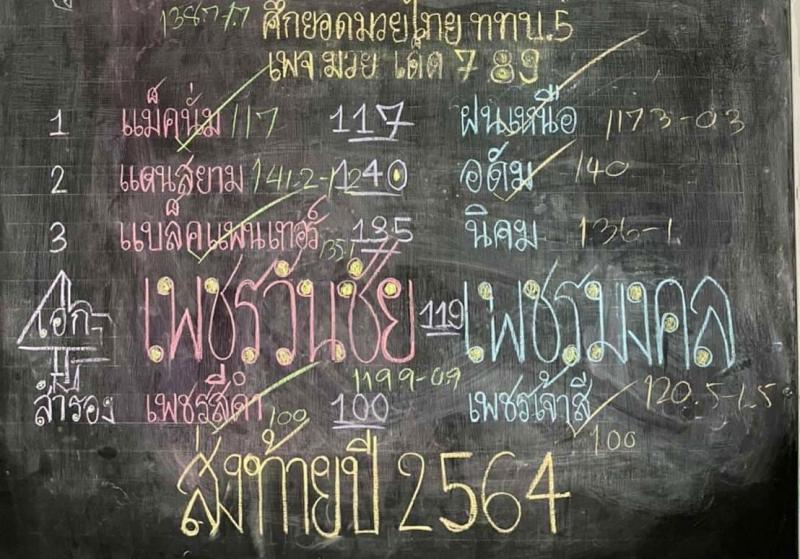 138.7-7.7
ศึกยอดมวยไทย ททบ.5
เพจ มวย เด็ด 7 89
1 แม็คนั่ม 117 117 ฝนเหนือ 117.3-0.3
2 แดนสยาม 141.2-1.2 140 อดัม 140
3 แบล็คแพนเทอร์ 135.1 135 นิคม 136-1
เอก เพชรวันชัย 119 เพชรมงคล
119.9-0.9 120.5-1.5
สำรอง เพชรสีดำ 100 100 เพชรเจ้าสี 100
ส่งท้ายปี 2564